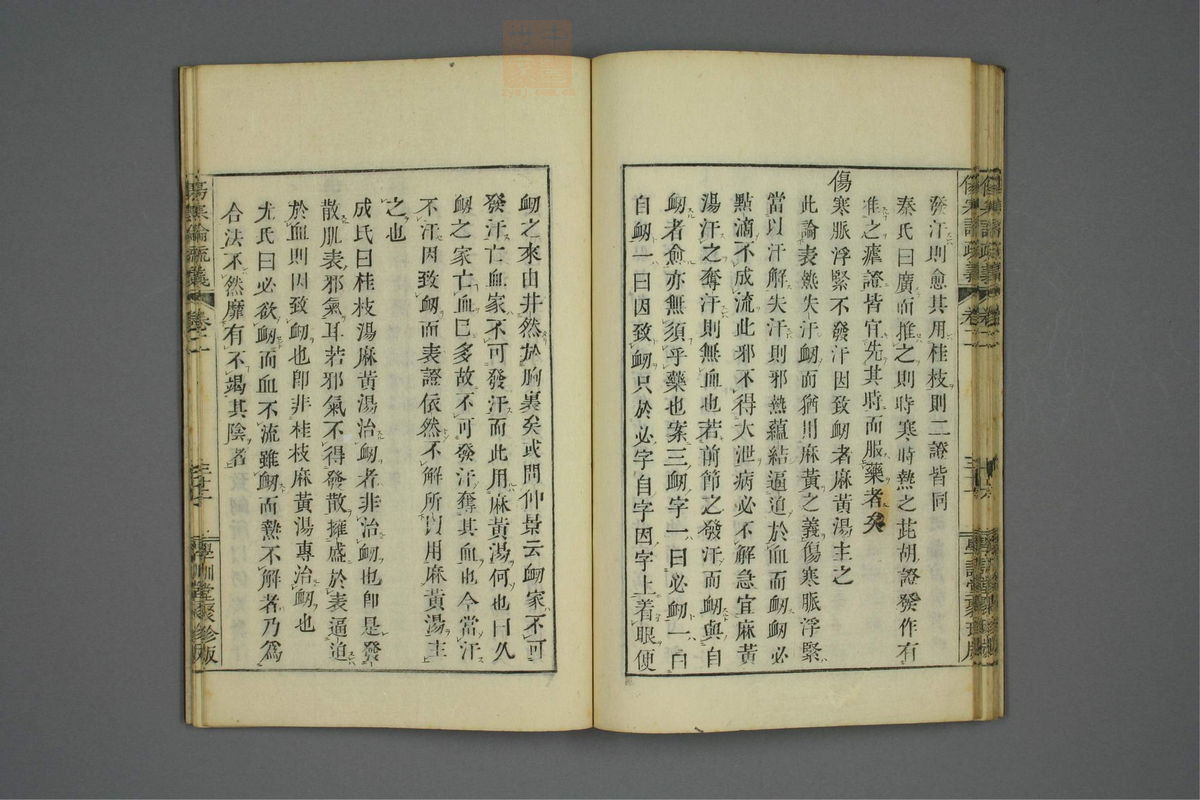 發汗則愈其用桂枝則二證皆同
秦氏曰廣而推之則時寒時熱之茈胡證發作有
准之瘧證皆宜先其時而服藥者矣
傷寒脈浮緊不發汗因致衂者麻黃湯主之
此論表熱失汗衂而猶用麻黃之義傷寒脈浮緊
當以汗解失汗則邪熱蘊結逼迫於血而衂衂必
點滴不成流此邪不得大泄病必不解急宜麻黃
湯汗之奪汗則無血也若前節之發汗而衂與自
衂者愈亦無須乎藥也案三衂字一曰必衂一曰
自衂一曰因致衂只於必字自字因字上着眼便
衂之來由井然於胸裏矣或問仲景云衂家不可
發汗亡血家不可發汗而此用麻黃湯何也曰久
衂之家亡血已多故不可發汗奪其血也今當汗
不汗因致衂而表證依然不解所以用麻黃湯主
之也
成氏曰桂枝湯麻黃湯治衂者非治衂也卽是發
散肌表邪氣耳若邪氣不得發散擁盛於表逼迫
於血則因致衂也卽非桂枝麻黃湯專治衂也
尤氏曰必欲衂而血不流雖衂而熱不解者乃爲
合法不然靡有不竭其陰者
傷寒論疏義
卷二
三十二
學訓堂聚珍版